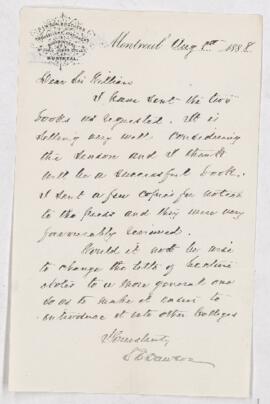 MONTREAL
Montreal Aug 1st 1888
Dear Sir William
I have sent the two
books as requested. It is
selling very well considering
the season and I think
will be a successful book.
I sent a few copies for notice
to the press and they were very
favourably received.
Would it not be wise
to change the title of Lecture
Notes to a more general one
so as to make it easier to
introduce it into other Colleges
Yours truly
Dawson